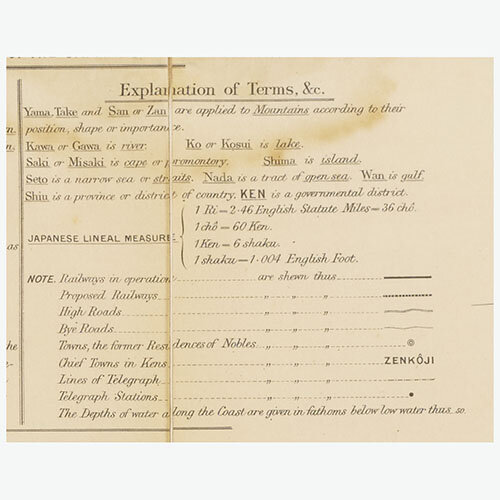 Explanation of Terms, &c.
Yama, Take and San or Zan are applied to Mountains according to their
position, shape or importance.
Kawa or Gawa is river. Ko or Kosui is lake.
Saki or Misaki is cape or promontory. Shima is island.
Seto is a narrow sea or straits. Nada is a tract of open sea. Wan is gulf.
Shiu is a province or district of country. KEN is a governmental district.
JAPANESE LINEAL MEASURE
1 Ri = 2·46 English Statute Miles = 36 chô.
1 chô = 60 Ken.
1 Ken = 6 shaku.
1 shaku = 1·004 English Foot.
NOTE. Railways in operation are shewn thus
Proposed Railways „ „ „
High Roads „ „ „
Bye Roads „ „ „
Towns, the former Residences of Nobles „ „ „
Chief Towns in Kens „ „ „ ZENKÔJI
Lines of Telegraph „ „ „
Telegraph Stations „ „ „
The Depths of water along the Coast are given in fathoms below low water thus so.